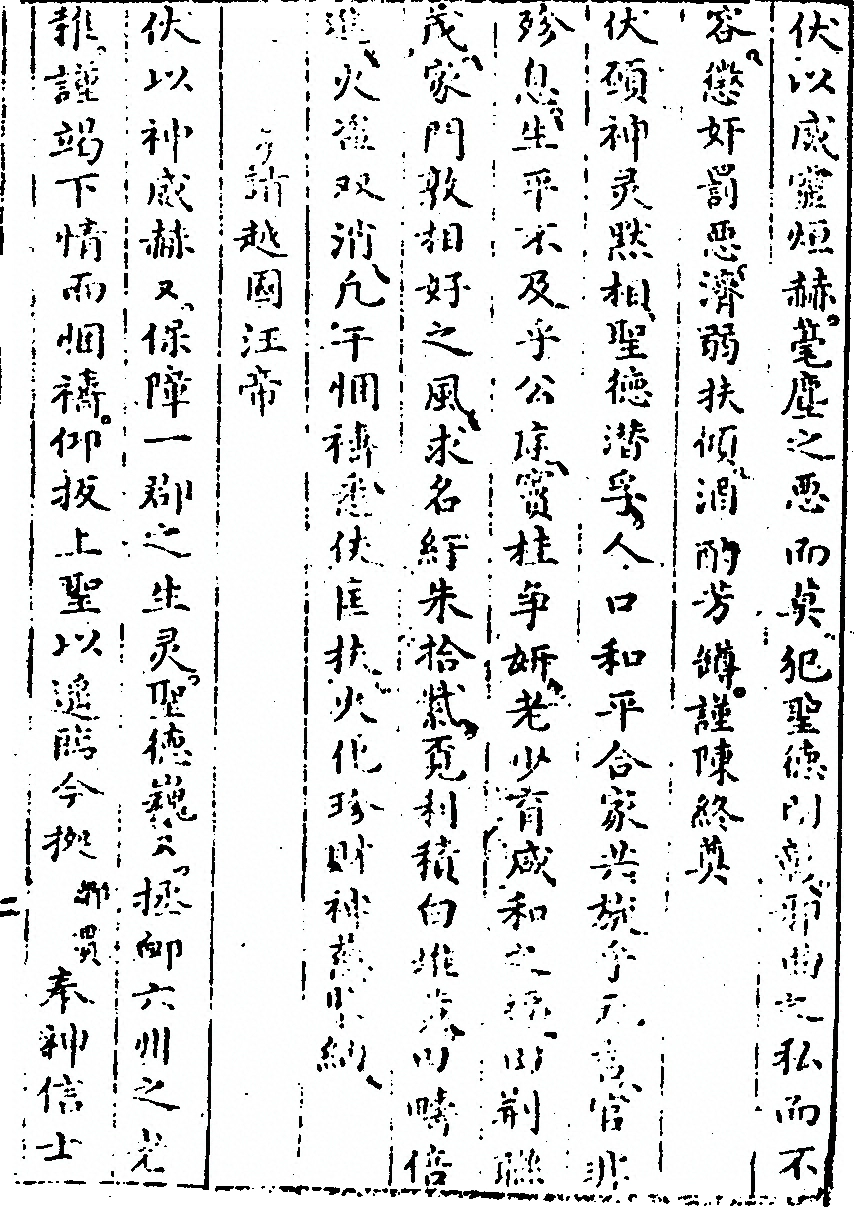 伏以威灵烜赫毫塵之惡而莫犯聖德門彰邪曲之私而不
容懲奸罰惡濟弱扶傾酒酌芳罇謹陳終奠
伏願神灵默相聖德潜孚人口和平合家共旋乎元吉官非
殄息生平不及乎公庭竇桂争妍老少育咸和之福田荆聯
茂家門敦相好之風求名紆朱拾紫覓利積白堆黄田疇倍
進火盗双消凡干悃禱悉伏匡扶火化珍財神慈鑒納
請越國汪帝
伏以神威赫又保障一郡之生灵聖德巍又拯卹六州之老
雅謹竭下情而悃禱仰扳上聖以遥臨今拠 奉神信士